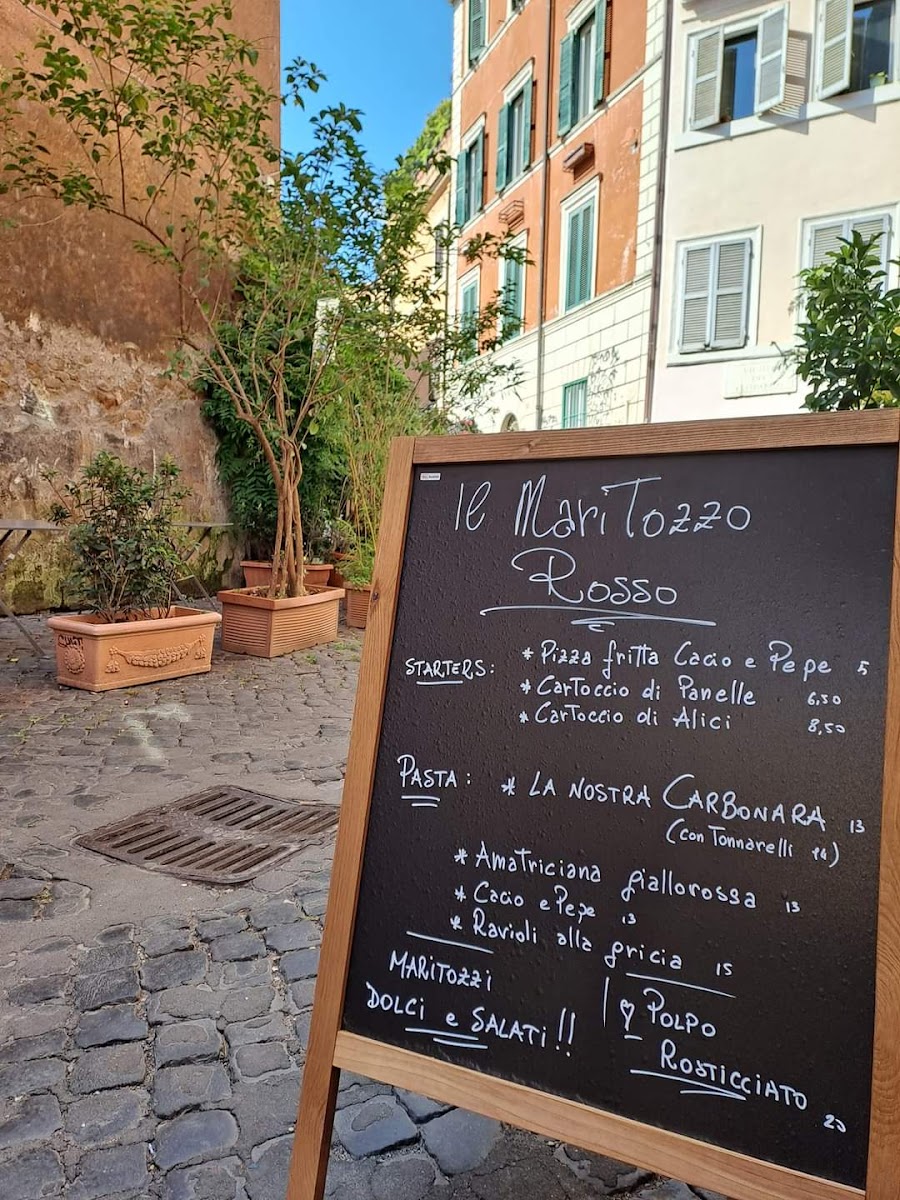 Il MariTozzo
Rosso
STARTERS: * Pizza fritta Cacio e Pepe 5
* CarToccio di Panelle 6,50
* CarToccio di Alici 8,50
PASTA: * LA NOSTRA CARBONARA 13
(con Tonnarelli 14)
* Amatriciana giallorossa 13
* Cacio e Pepe 13
* Ravioli alla gricia 15
MARITOZZI
DOLCI e SALATI!!
POLPO
ROSTICCIATO 20